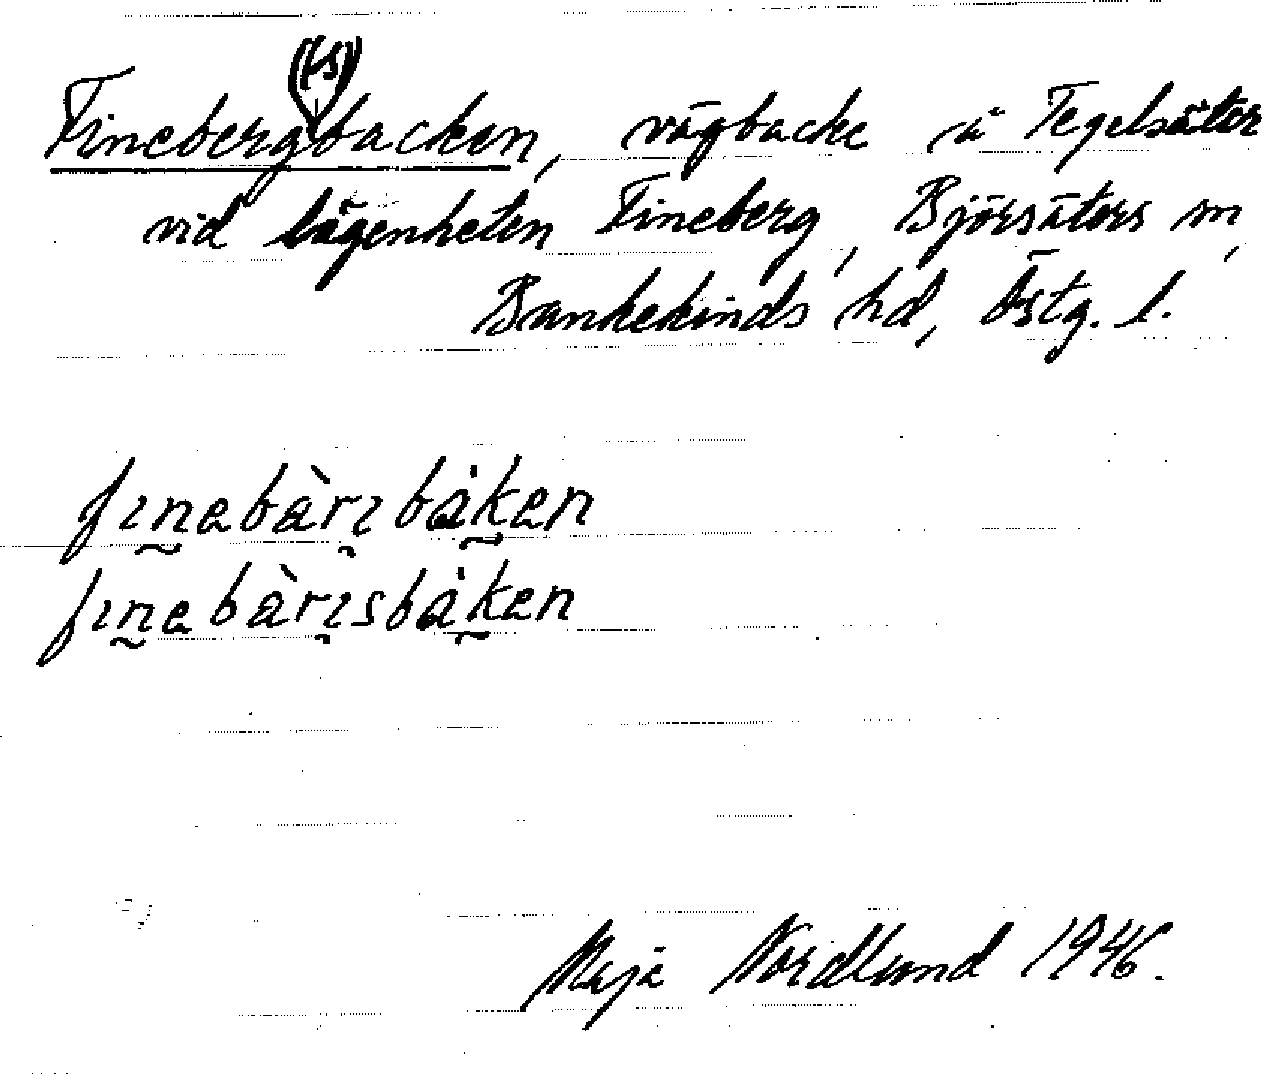 Fineberg(s)backen, vägbacke å Tegelsäter
vid lägenheten Fineberg, Björsäters sn,
Bankekinds hd, Östg. l.
fı̰nebàrı̰ bák̰en
fı̰nebàrı̰sbák̰en
Maja Nordlund 1946.